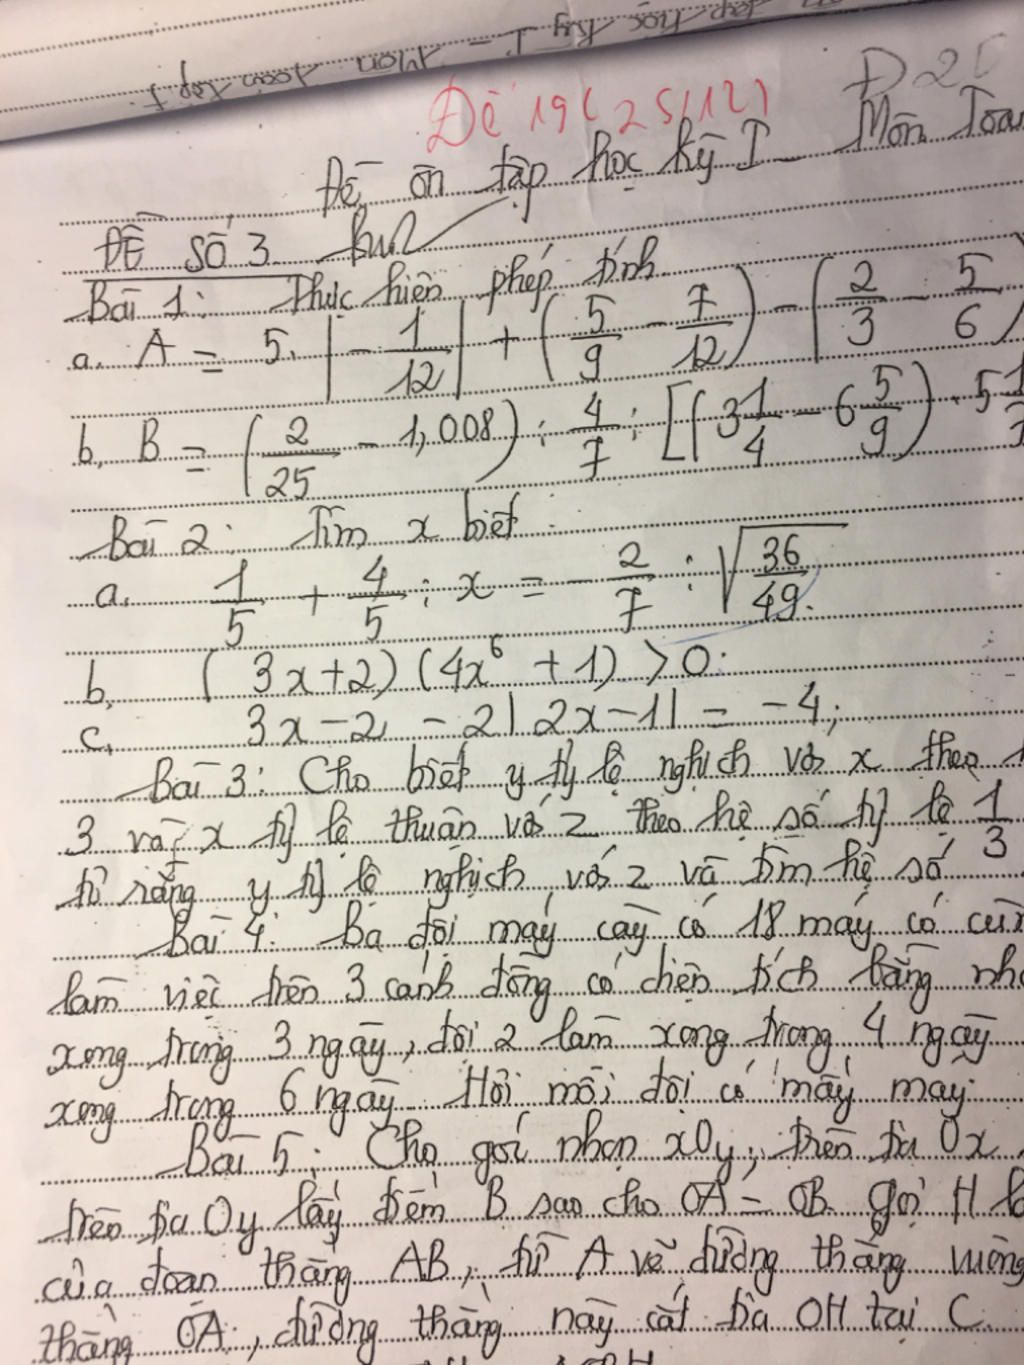 ập học kỳ I - Môn toán lớp 7.
Đề 19 (25/12)
Đề ôn tập học kỳ I - Môn Toán
ĐỀ SỐ 3
Bài 1: Thực hiện phép tính
a. A = 5. |-1/12| + (5/9 - 7/12) - (2/3 - 5/6)
b, B = (2/25 - 1,008) : 4/7 : [(3 1/4 - 6 5/9) . 5
Bài 2: Tìm x biết:
a. 1/5 + 4/5 : x = - 2/7 : √(36/49).
b, (3x+2)(4x⁶ + 1) > 0.
c, 3x - 2 - 2|2x-1| = -4;
Bài 3: Cho biết y tỷ lệ nghịch với x theo
3 và x tỷ lệ thuận với z theo hệ số tỷ lệ 1/3
tỏ rằng y tỷ lệ nghịch với z và tìm hệ số
Bài 4: Ba đội máy cày có 18 máy có cùn
làm việc trên 3 cánh đồng có diện tích bằng nh
xong trong 3 ngày, đội 2 làm xong trong 4 ngày
xong trong 6 ngày. Hỏi mỗi đội có mấy máy.
Bài 5: Cho góc nhọn xOy, trên tia Ox
trên tia Oy lấy điểm B sao cho OA = OB. gọi H l
của đoạn thẳng AB, từ A vẽ đường thẳng vuông
thẳng OA, đường thẳng này cắt tia OH tại C.